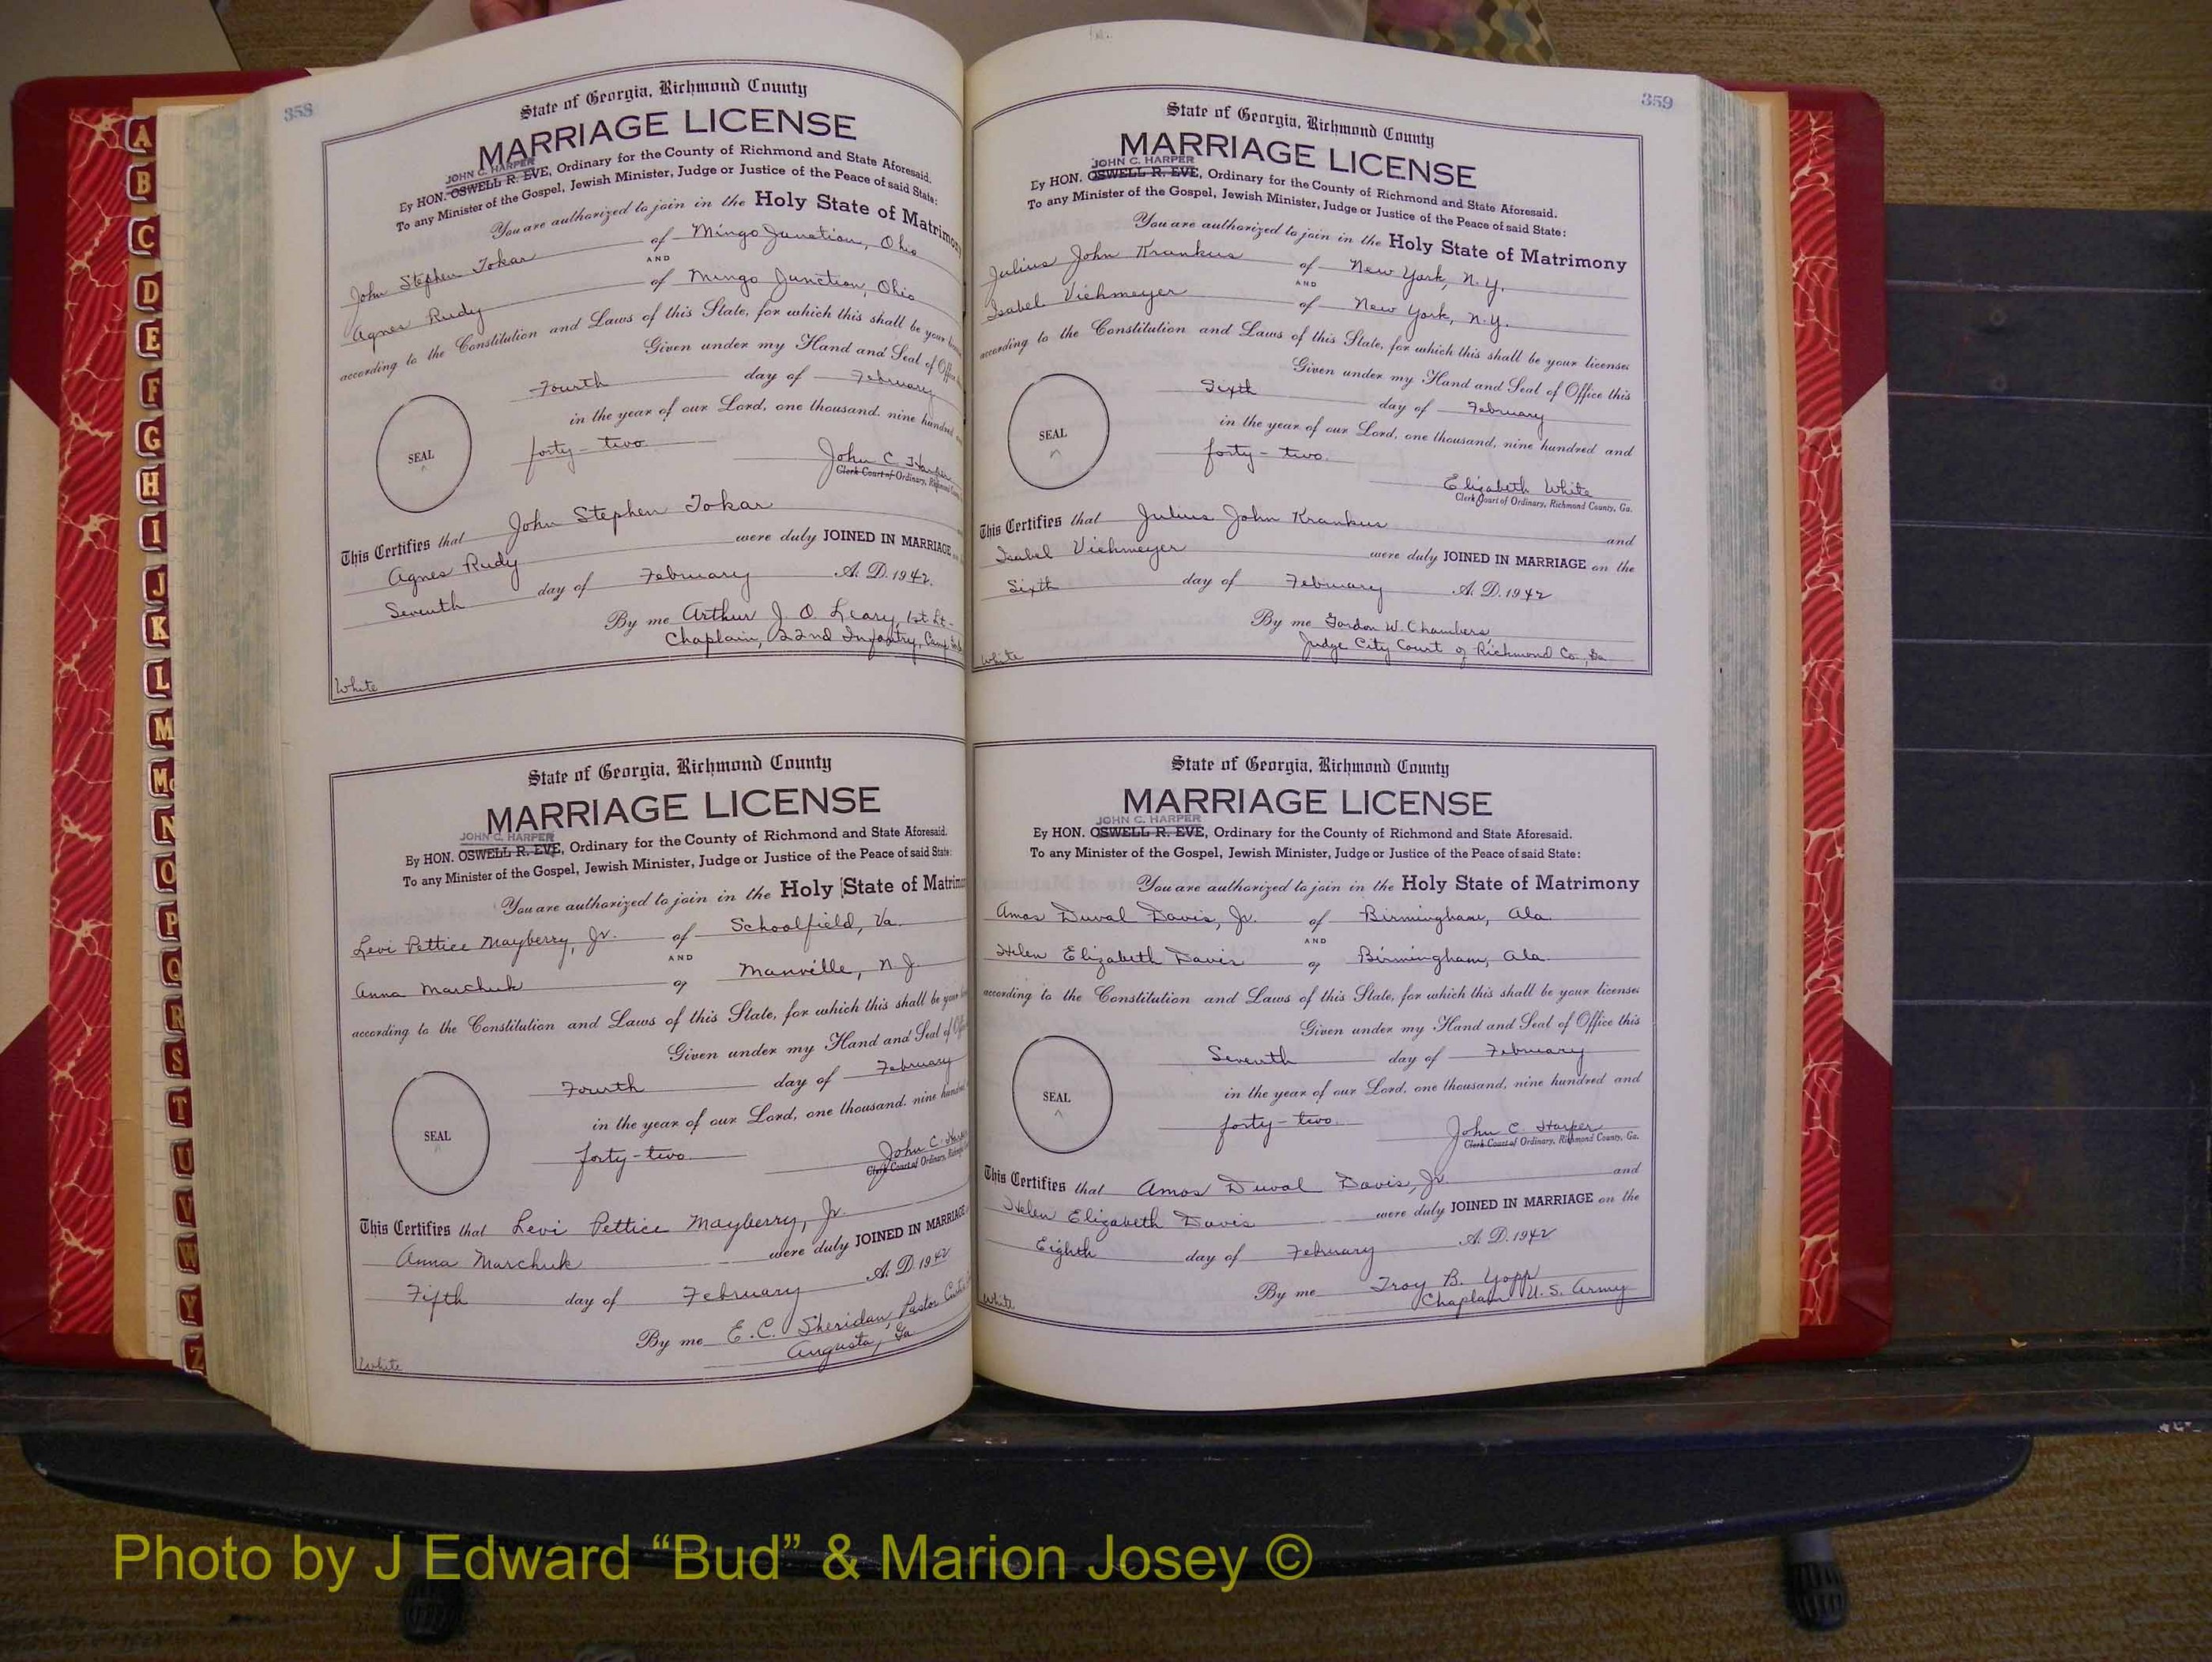 358
State of Georgia, Richmond County
MARRIAGE LICENSE
JOHN C. HARPER
By HON. OSWELL R. EVE, Ordinary for the County of Richmond and State Aforesaid.
To any Minister of the Gospel, Jewish Minister, Judge or Justice of the Peace of said State:
You are authorized to join in the Holy State of Matrimony
John Stephen Tokar of Mingo Junction, Ohio
AND
Agnes Rudy of Mingo Junction, Ohio
according to the Constitution and Laws of this State, for which this shall be your
Given under my Hand and Seal of Office
Fourth day of February
in the year of our Lord, one thousand, nine hundred
forty-two
John C. Harper
SEAL
Clerk Court of Ordinary,
This Certifies that John Stephen Tokar
Agnes Rudy were duly JOINED IN MARRIAGE
Seventh day of February A. D. 1942.
By me Arthur J. O. Leary, 1st Lt-
Chaplain, 22nd Infantry, Camp
White
State of Georgia, Richmond County
MARRIAGE LICENSE
JOHN C. HARPER
By HON. OSWELL R. EVE, Ordinary for the County of Richmond and State Aforesaid.
To any Minister of the Gospel, Jewish Minister, Judge or Justice of the Peace of said State:
You are authorized to join in the Holy State of Matrimony
Levi Pettice Mayberry, Jr. of Schoolfield, Va.
AND
Anna Marchuk of Manville, N J
according to the Constitution and Laws of this State, for which this shall be your
Given under my Hand and Seal of
Fourth day of February
in the year of our Lord, one thousand, nine hundred
forty-two
John C. Harper
SEAL
Clerk Court of Ordinary,
This Certifies that Levi Pettice Mayberry, Jr.
Anna Marchuk were duly JOINED IN MARRIAGE
Fifth day of February A. D. 1942
By me E. C. Sheridan, Pastor
Augusta, Ga
White
359
State of Georgia, Richmond County
MARRIAGE LICENSE
JOHN C. HARPER
By HON. OSWELL R. EVE, Ordinary for the County of Richmond and State Aforesaid.
To any Minister of the Gospel, Jewish Minister, Judge or Justice of the Peace of said State:
You are authorized to join in the Holy State of Matrimony
Julius John Krankus of New York, N.Y.
AND
Isabel Viehmeyer of New York, N.Y.
according to the Constitution and Laws of this State, for which this shall be your licenses
Given under my Hand and Seal of Office this
Sixth day of February
in the year of our Lord, one thousand, nine hundred and
forty-two.
Elizabeth White
SEAL
Clerk Court of Ordinary, Richmond County, Ga.
This Certifies that Julius John Krankus and
Isabel Viehmeyer were duly JOINED IN MARRIAGE on the
Sixth day of February A. D. 1942
By me Gordon W. Chambers
Judge City Court of Richmond Co., Ga
White
State of Georgia, Richmond County
MARRIAGE LICENSE
JOHN C. HARPER
By HON. OSWELL R. EVE, Ordinary for the County of Richmond and State Aforesaid.
To any Minister of the Gospel, Jewish Minister, Judge or Justice of the Peace of said State:
You are authorized to join in the Holy State of Matrimony
Amos Duval Davis, Jr. of Birmingham, Ala.
AND
Helen Elizabeth Davis of Birmingham, Ala.
according to the Constitution and Laws of this State, for which this shall be your licenses
Given under my Hand and Seal of Office this
Seventh day of February
in the year of our Lord, one thousand, nine hundred and
forty-two.
John C. Harper
SEAL
Clerk Court of Ordinary, Richmond County, Ga.
This Certifies that Amos Duval Davis, Jr. and
Helen Elizabeth Davis were duly JOINED IN MARRIAGE on the
Eighth day of February A. D. 1942
By me Troy B. Yopp
Chaplain U. S. Army
White
A
B
C
D
E
F
G
H
I
J
K
L
M
Mc
N
O
P
Q
R
S
T
U
V
W
Y
Z
Photo by J Edward “Bud” & Marion Josey ©